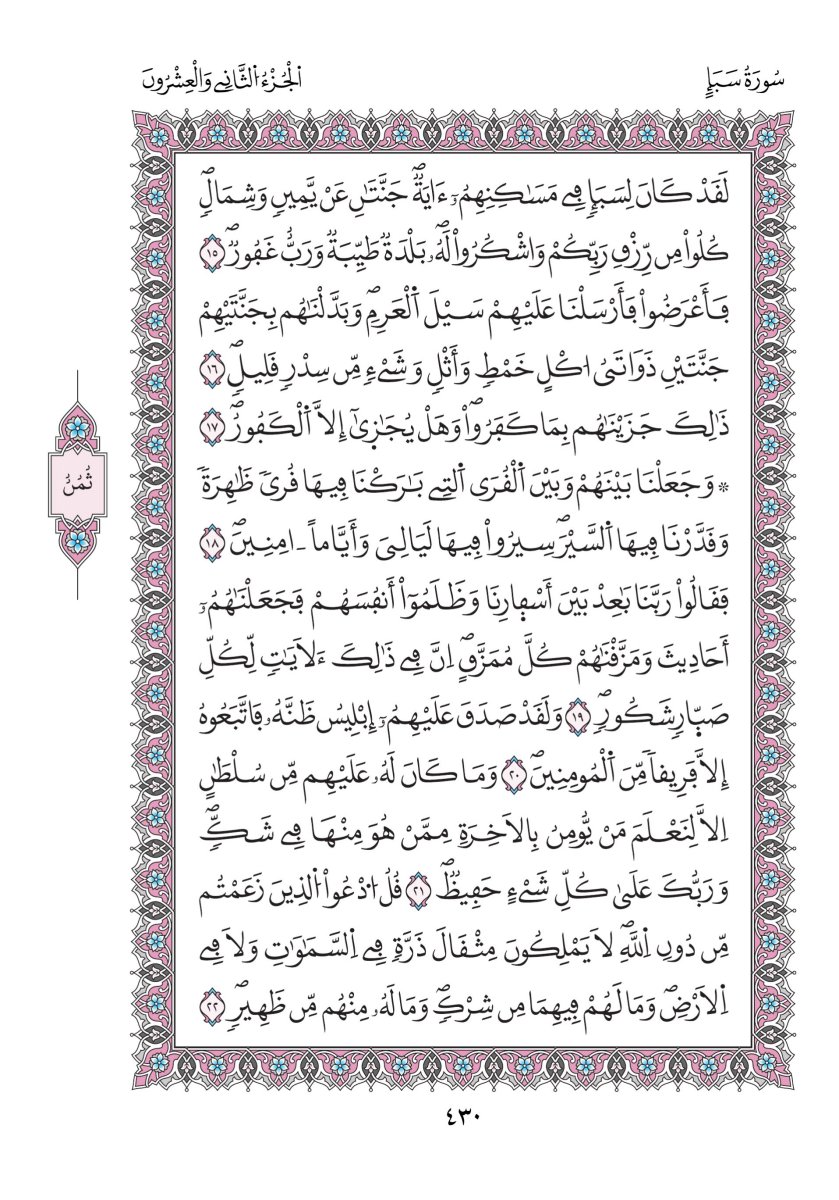 سُورَةُ سَبَإٍ
اَ۬لْجُزْءُ اُ۬لثَّانِے وَالْعِشْرُونَ
لَقَدْ كَانَ لِسَبَإٖ فِے مَسَٰكِنِهِمُۥٓ ءَايَةٞۖ جَنَّتَٰنِ عَنْ يَّمِينٖ وَشِمَالٖۖ
كُلُواْ مِن رِّزْقِ رَبِّكُمْ وَاشْكُرُواْ لَهُۥۖ بَلْدَةٞ طَيِّبَةٞ وَرَبٌّ غَفُورٞۖ ١٥
فَأَعْرَضُواْ فَأَرْسَلْنَا عَلَيْهِمْ سَيْلَ اَ۬لْعَرِمِۖ وَبَدَّلْنَٰهُم بِجَنَّتَيْهِمْ
جَنَّتَيْنِ ذَوَاتَىُ ا۟كْلٍ خَمْطٖ وَأَثْلٖ وَشَےْءٖ مِّن سِدْرٖ قَلِيلٖۖ ١٦
ذَٰلِكَ جَزَيْنَٰهُم بِمَا كَفَرُواْۖ وَهَلْ يُجَٰزَىٰٓ إِلَّا اَ۬لْكَفُورُۖ ١٧
* وَجَعَلْنَا بَيْنَهُمْ وَبَيْنَ اَ۬لْقُرَى اَ۬لتِے بَٰرَكْنَا فِيهَا قُرىٗ ظَٰهِرَةٗ
وَقَدَّرْنَا فِيهَا اَ۬لسَّيْرَۖ سِيرُواْ فِيهَا لَيَالِيَ وَأَيَّاماً ـ اٰمِنِينَۖ ١٨
فَقَالُواْ رَبَّنَا بَٰعِدْ بَيْنَ أَسْفٰ۪ارِنَا وَظَلَمُوٓاْ أَنفُسَهُمْ فَجَعَلْنَٰهُمُۥٓ
أَحَادِيثَ وَمَزَّقْنَٰهُمْ كُلَّ مُمَزَّقٍۖ اِنَّ فِے ذَٰلِكَ ءَلَايَٰتٖ لِّكُلِّ
صَبّ۪ارٖ شَكُورٖۖ ١٩ وَلَقَدْ صَدَقَ عَلَيْهِمُۥٓ إِبْلِيسُ ظَنَّهُۥ فَاتَّبَعُوهُ
إِلَّا فَرِيقاٗ مِّنَ اَ۬لْمُومِنِينَۖ ٢٠ وَمَا كَانَ لَهُۥ عَلَيْهِم مِّن سُلْطَٰنٍ
اِلَّا لِنَعْلَمَ مَنْ يُّومِنُ بِالَاخِرَةِ مِمَّنْ هُوَ مِنْهَا فِے شَكّٖۖ
وَرَبُّكَ عَلَىٰ كُلِّ شَےْءٍ حَفِيظٞۖ ٢١ قُلُ ا۟دْعُواْ اُ۬لذِينَ زَعَمْتُم
مِّن دُونِ اِ۬للَّهِۖ لَا يَمْلِكُونَ مِثْقَالَ ذَرَّةٖ فِے اِ۬لسَّمَٰوَٰتِ وَلَا فِے
اِ۬لَارْضِۖ وَمَا لَهُمْ فِيهِمَا مِن شِرْكٖۖ وَمَا لَهُۥ مِنْهُم مِّن ظَهِيرٖۖ ٢٢
ثُمُنُ
٤٣٠